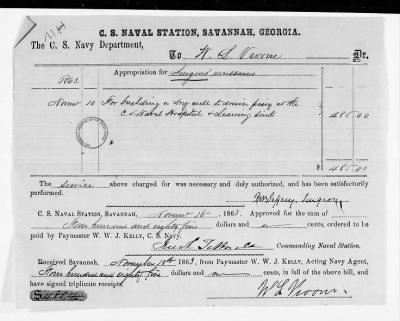 C. S. NAVAL STATION, SAVANNAH, GEORGIA.
The C. S. Navy Department,
To W. S. Dr.
Appropriation for Surgeons' necessaries
1863.
Novem 10 For building a dry well to drain privy at the
C. S. Naval Hospital & cleaning sink 485.00
$ 485.00
The service above charged for was necessary and duly authorized, and has been satisfactorily
performed.
Surgeon
C. S. NAVAL STATION, SAVANNAH, Novem 16 1863. Approved for the sum of
Four hundred and eighty five dollars and no cents, ordered to be
paid by Paymaster W. W. J. KELLY, C. S. Navy.
Commanding Naval Station.
Received Savannah, November 18th 1863, from Paymaster W. W. J. KELLY, Acting Navy Agent,
Four hundred and eighty five dollars and no cents, in full of the above bill, and
have signed triplicate receipts.
$485.00